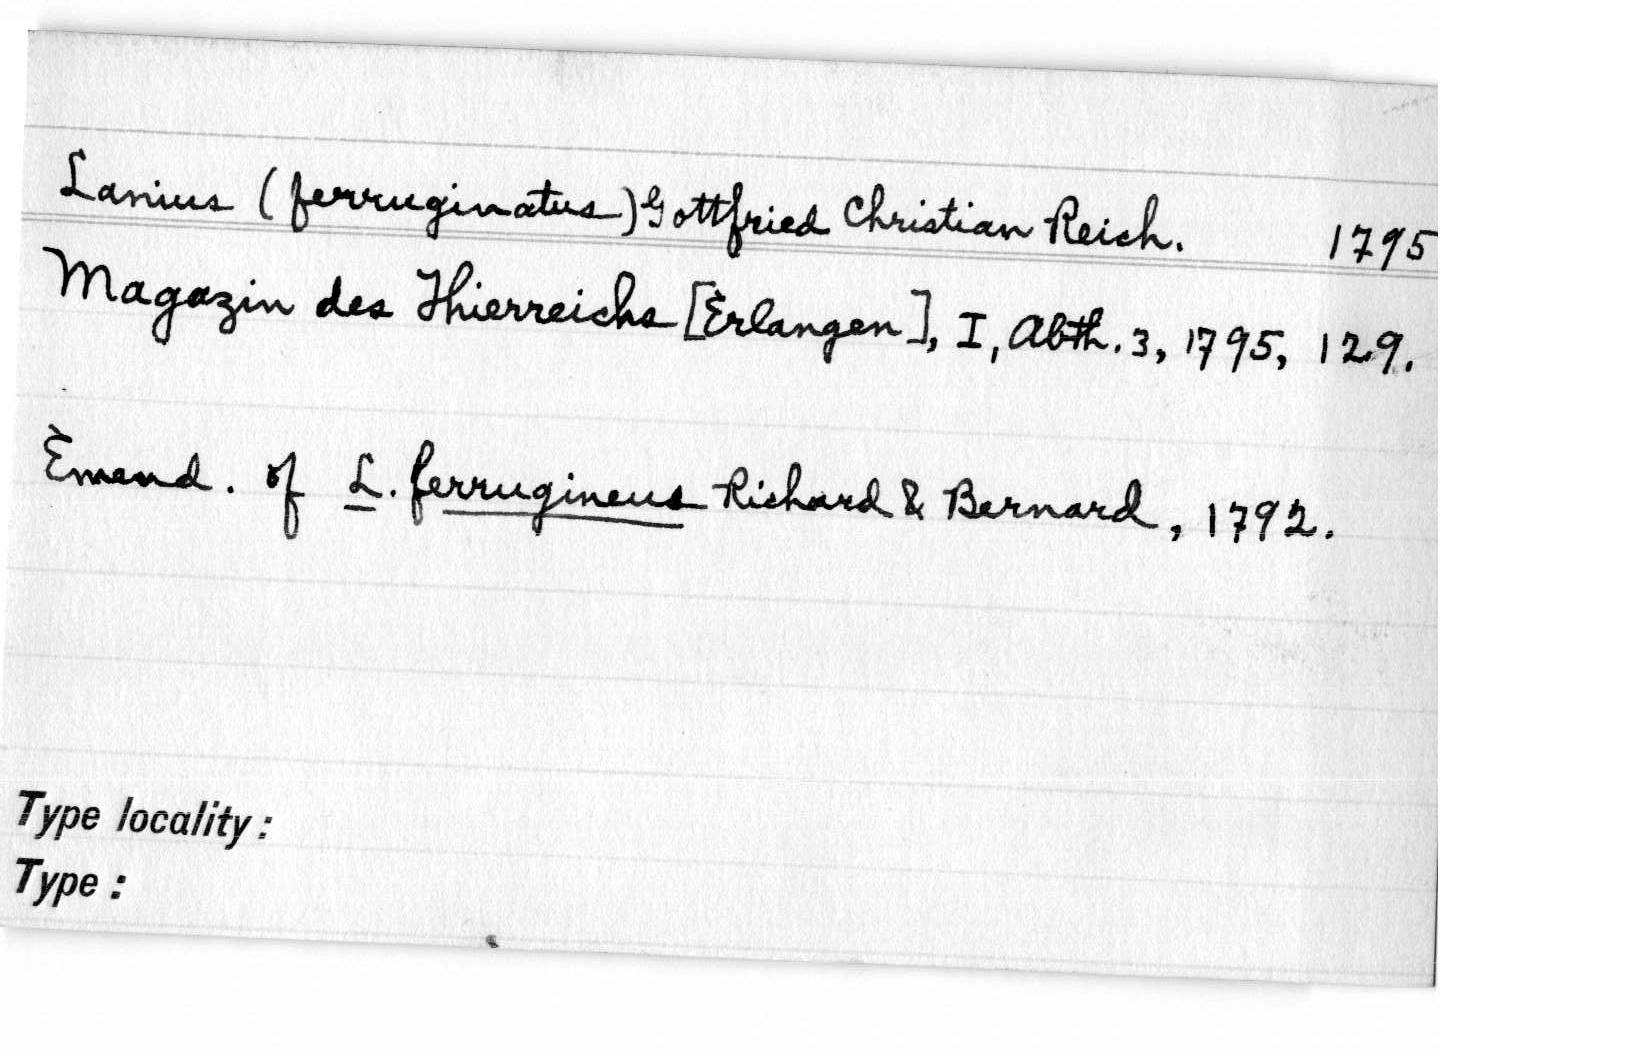 Lanius (ferruginatus) Gottfried Christian Reich. 1795
Magazin des Thierreichs [Erlangen], I, Abth. 3, 1795, 129.
Emend. of L. ferrugineus Richard & Bernard, 1792.
Type locality:
Type: